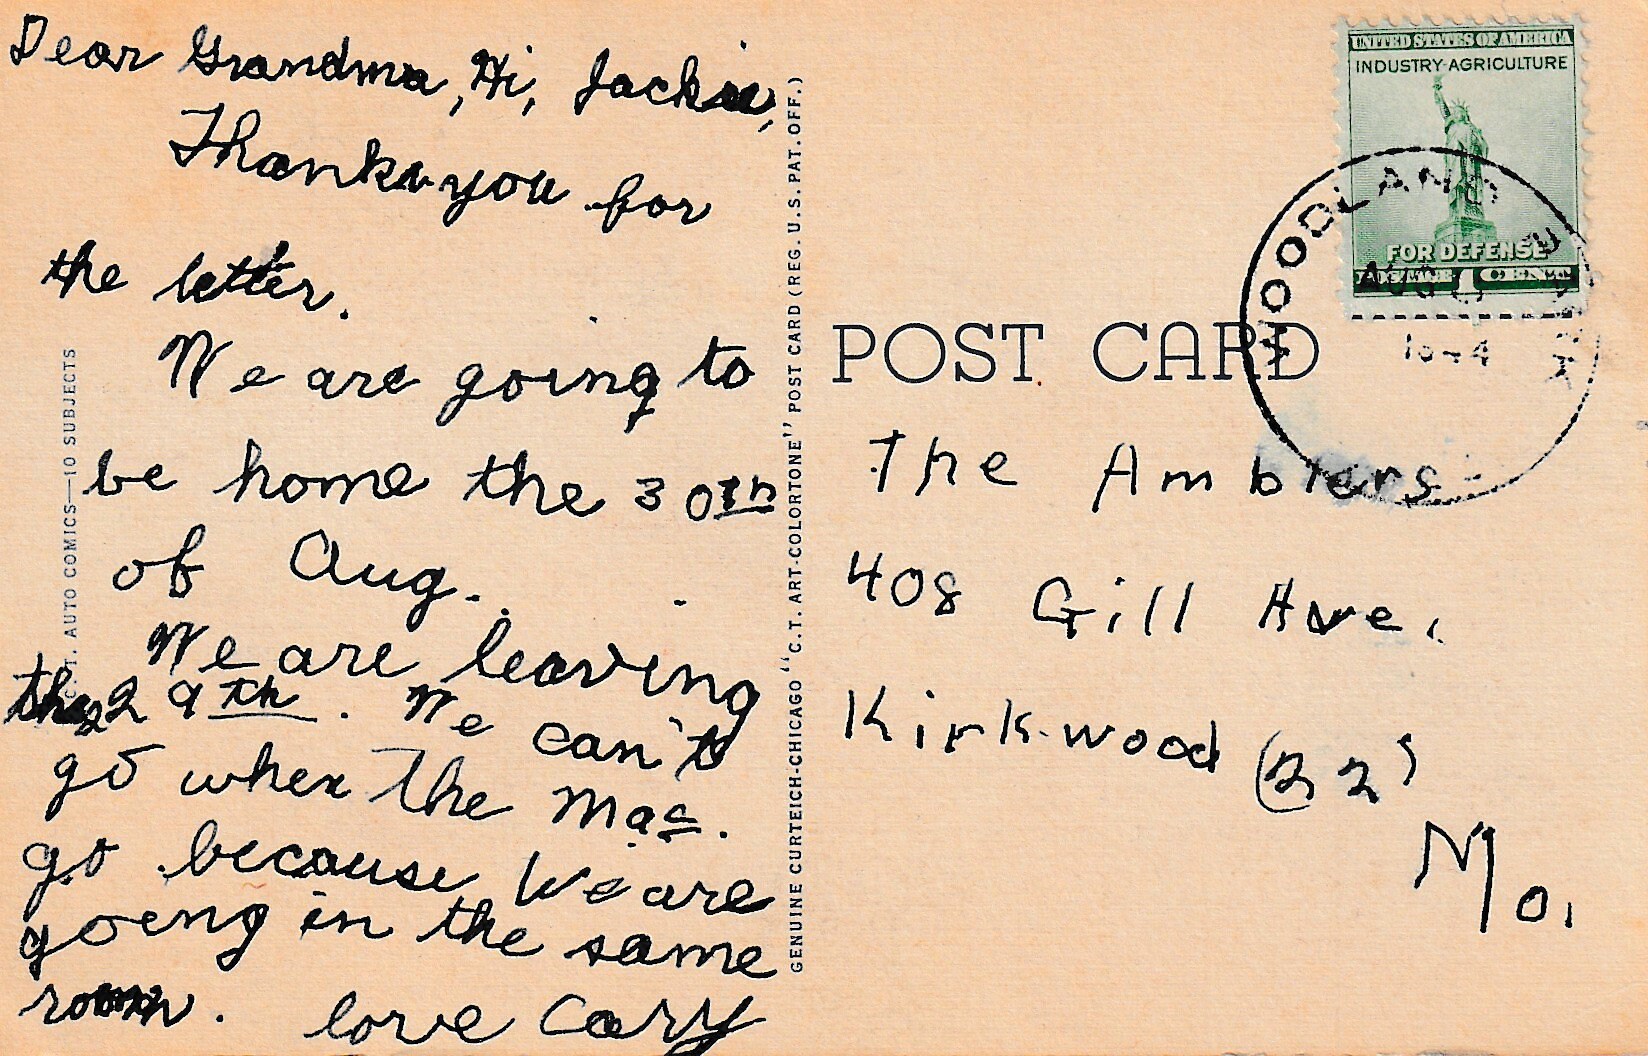 Dear Grandma, Hi, Jackie,
Thank you for
the letter.
We are going to
be home the 30th
of Aug.
We are leaving
the 29th. We can't
go when the Mac.
go because We are
goeng in the same
room. love Cary
C.T. AUTO COMICS—10 SUBJECTS
GENUINE CURTEICH-CHICAGO "C.T. ART-COLORTONE" POST CARD (REG. U.S. PAT. OFF.)
UNITED STATES OF AMERICA
INDUSTRY-AGRICULTURE
FOR DEFENSE
POSTAGE 1 CENT
WOODLAND PARK
AUG
1944
POST CARD
The Amblers
408 Gill Ave.
Kirkwood (22)
Mo.